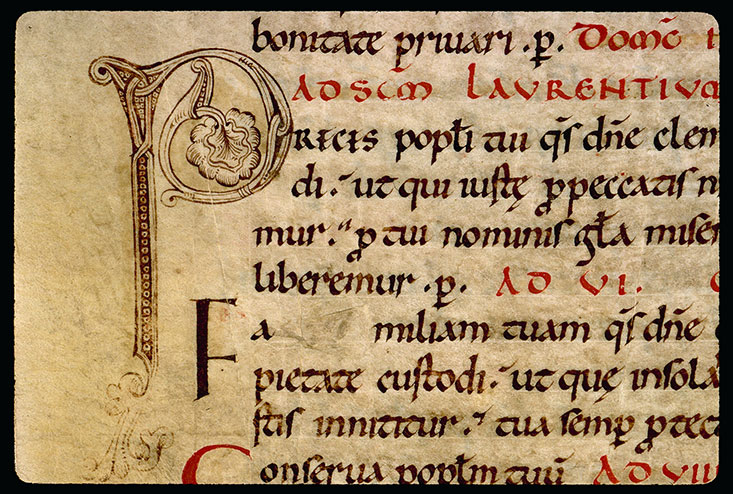 bonitate priuari .p. Domc̄ 
AD SC̄M LAURENTIUM
PRECES popłi tui q̄s dn̄e clem
di. ut qui iustę ꝓ peccatis n
mur. ꝓ tui nominis gła miser
liberemur .p. AD VI.
Fa miliam tuam q̄s dn̄e
pietate custodi. ut quę in sola
stis innititur. tua semꝑ ꝓtect
Conserua popłm tuū AD VIII